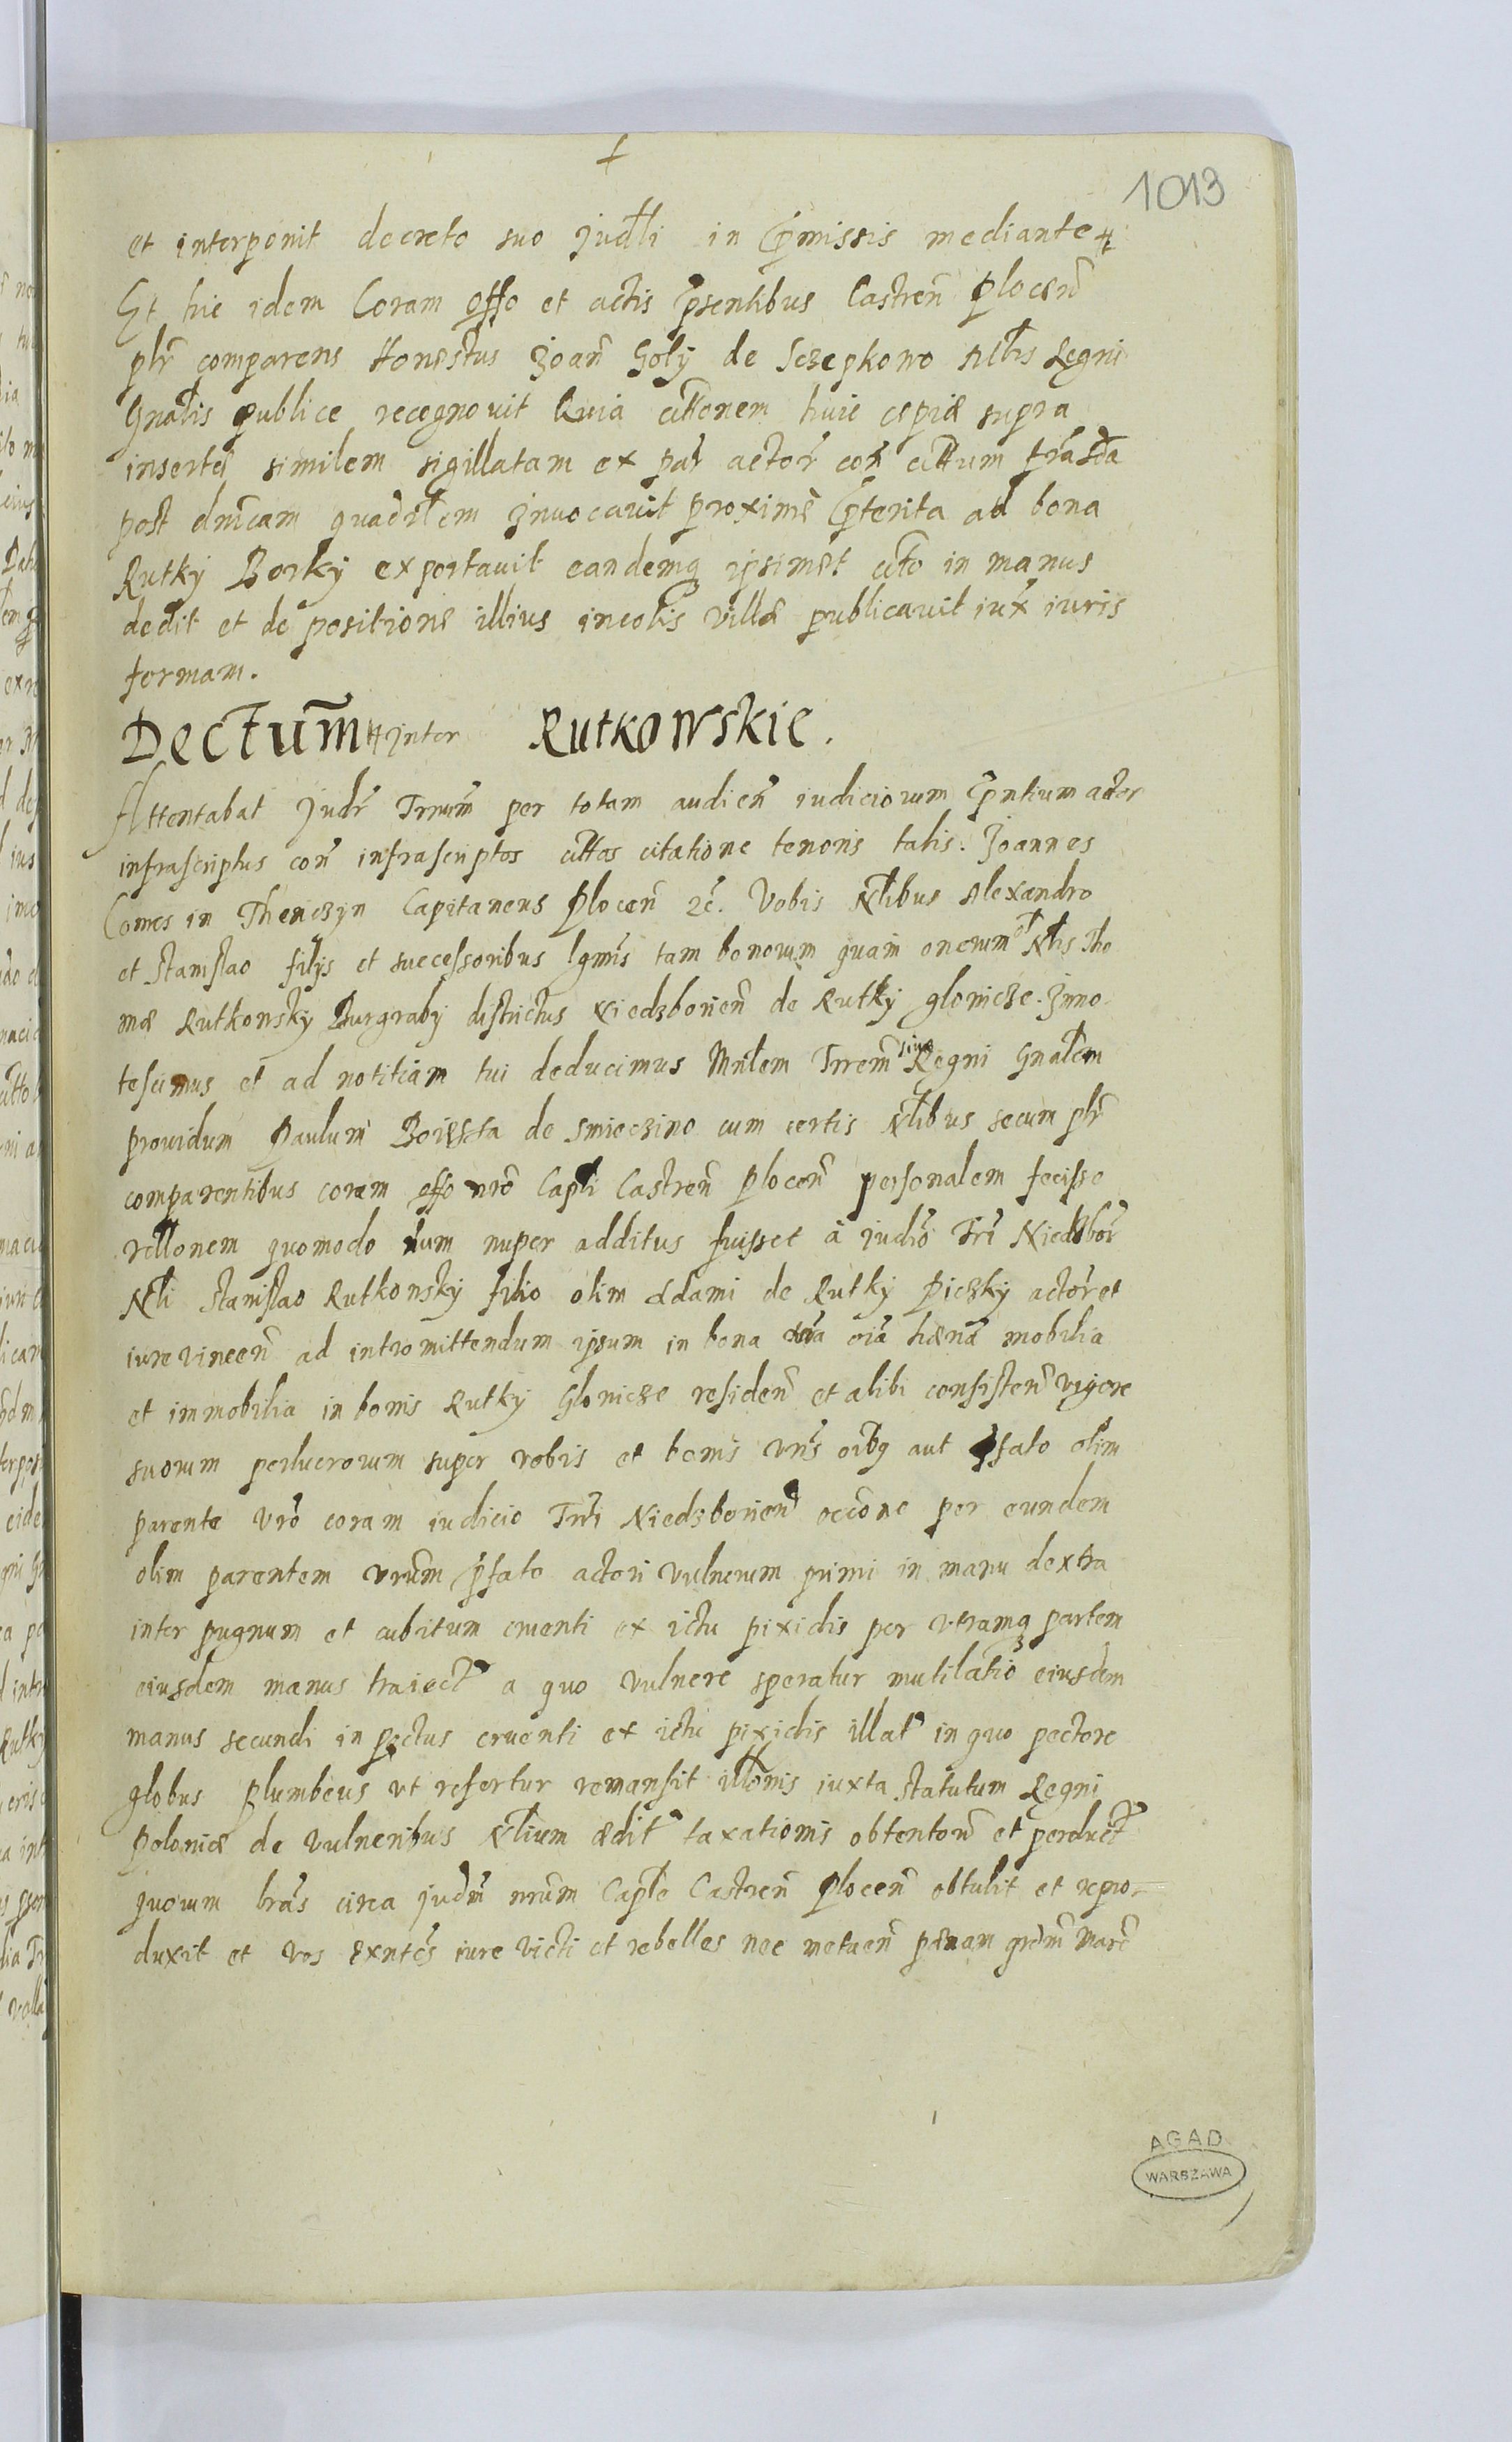 1013
et interponit decreto suo Judli in p̄missis mediante
Et hic idem Coram offo et actis p̄sentibus Castren̄ Plocen̄
plr̄ comparens Honestus Joan̄ Goły de Sczepkowo Mtlis Regni
Gnalis publice recognovit Quia cittonem huic copiæ supra
insertæ similem sigillatam ex par̄ actor̄ con̄ cittum
post dnīcam quadrlem Invocavit proxime p̄terita ad bona
Rutky Borky exportavit eandemq ipsimet citto in manus
dedit et de positione illius incolis villæ publicavit iux̄ iuris
formam.
Dectum̄ Inter Rutkowskie.
Attentabat Judr̄ Trrum̄ per totam audien̄ iudiciorum p̄ntium actor
infrascriptus con̄ infrascriptos cittos citatione tenoris talis. Joannes
Comes in Thenczyn Capitaneus Plocen̄ 2c̄. Vobis Ntlibus Alexandro
et Stanislao filijs et successoribus lgmīs tam bonorum quam onerum ol Ntlis Tho
mæ Rutkowsky Burgraby districtus Niedzborien̄ de Rutky glonicze. Inno
tescimus et ad notitiam tui deducimus Mnlem Trrem̄ sive Regni Gnalem
providum Paulum de Smieczino cum certis Ntlibus secum plr̄
comparentibus coram offo nrō Capli Castren̄ Plocen̄ personalem fecisse
rellonem quomodo dum nuper additus fuisset à iudiō Trī Niedzbor̄
Ntli Stanislao Rutkowsky filio olim Adami de Rutky Piczky actor̄ et
iure vincen̄ ad intromittendum ipsum in bona oīa hæna mobilia
et immobilia in bonis Rutky Glonicze residen̄ et alibi consisten̄ vigore
suorum perlucrorum super vobis et bonis vrīs oibq aut p̄fato olim
parente vrō coram iudicio Trrī Niedzborien̄ occōne per eundem
olim parentem vrum̄ p̄fato actori vulnerum primi in manu dextra
inter pugnum et cubitum cruenti ex ictu pixidis per utramq partem
eiusdem manus traiect a quo vulnere speratur mutilatio eiusdem
manus secundi in pectus cruenti ex ictu pixidis illat in quo pectore
globus plumbeus ut refertur remansit illonis iuxta statutum Regni
Poloniæ de vulneribus Ntlium ædit taxationis obtentor̄ et perduct
quorum lrās circa judm̄ nrum̄ Caple Castren̄ Plocen̄ obtulit et repro-
duxit et vos exntes iure victi et rebelles nec metuen̄ pænam
AGAD
WARSZAWA